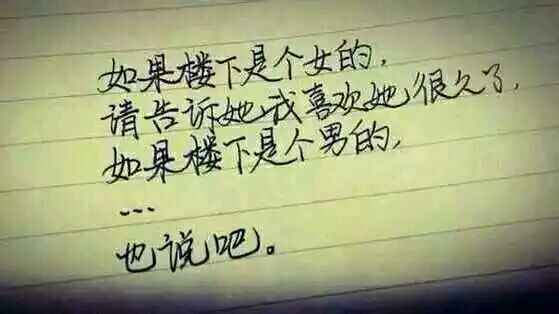 如果楼下是个女的,
请告诉她我喜欢她很久了,
如果楼下是个男的,
...
也说吧。